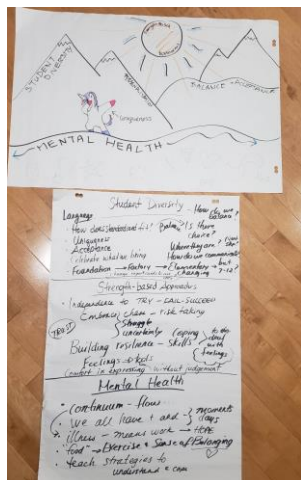 STUDENT DIVERSITY
Uniqueness
BALANCE ACCEPTANCE
MENTAL HEALTH
Student Diversity
How do we balance?
Language
How does standard fit?
Is there choice?
Uniqueness
Acceptance
Where they are?
Celebrate what we bring
How do we communicate
Foundation → Factory → Elementary → but
changing 7-12?
Strength-based Approaches
Independence to TRY - FAIL - SUCCEED
Embrace them - risk taking
TRUST
struggle
uncertainty
Coping
to deal with feelings
Building resilience - skills
Feelings
comfort in expressing without judgement
Mental Health
Continuum - flows
We all have + and -
moments
days
illness - means work → HOPE
"food" → Exercise & Sense of Belonging
teach strategies to
understand &